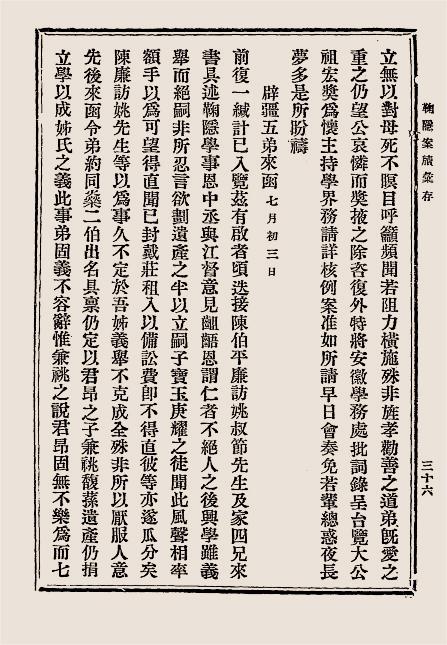 鞠隱案牘彙存
三十六
立無以對母死不瞑目呼籲頻聞若阻力橫施殊非旌孝勸善之道弟旣愛之
重之仍望公哀憐而獎掖之除咨復外特將安徽學務處批詞錄呈台覽大公
祖宏奬爲懷主持學界務請詳核例案准如所請早日會奏免若輩總惑夜長
夢多是所盼禱
辟疆五弟來函 七月初三日
前復一緘計已入覽茲有啟者頃迭接陳伯平廉訪姚叔節先生及家四兄來
書具述鞠隱學事恩中丞與江督意見齟齬恩謂仁者不絕人之後興學雖義
舉而絕嗣非所忍言欲劃遺產之半以立嗣子寶玉庚耀之徒聞此風聲相率
額手以爲可望得直聞已封戴莊租入以備訟費卽不得直彼等亦遂瓜分矣
陳廉訪姚先生等以爲事久不定於吾姊義舉不克成全殊非所以厭服人意
先後來函令弟約同燊二伯出名具稟仍定以君昂之子兼祧馥蓀遺產仍捐
立學以成姊氏之義此事弟固義不容辭惟兼祧之說君昂固無不樂爲而七